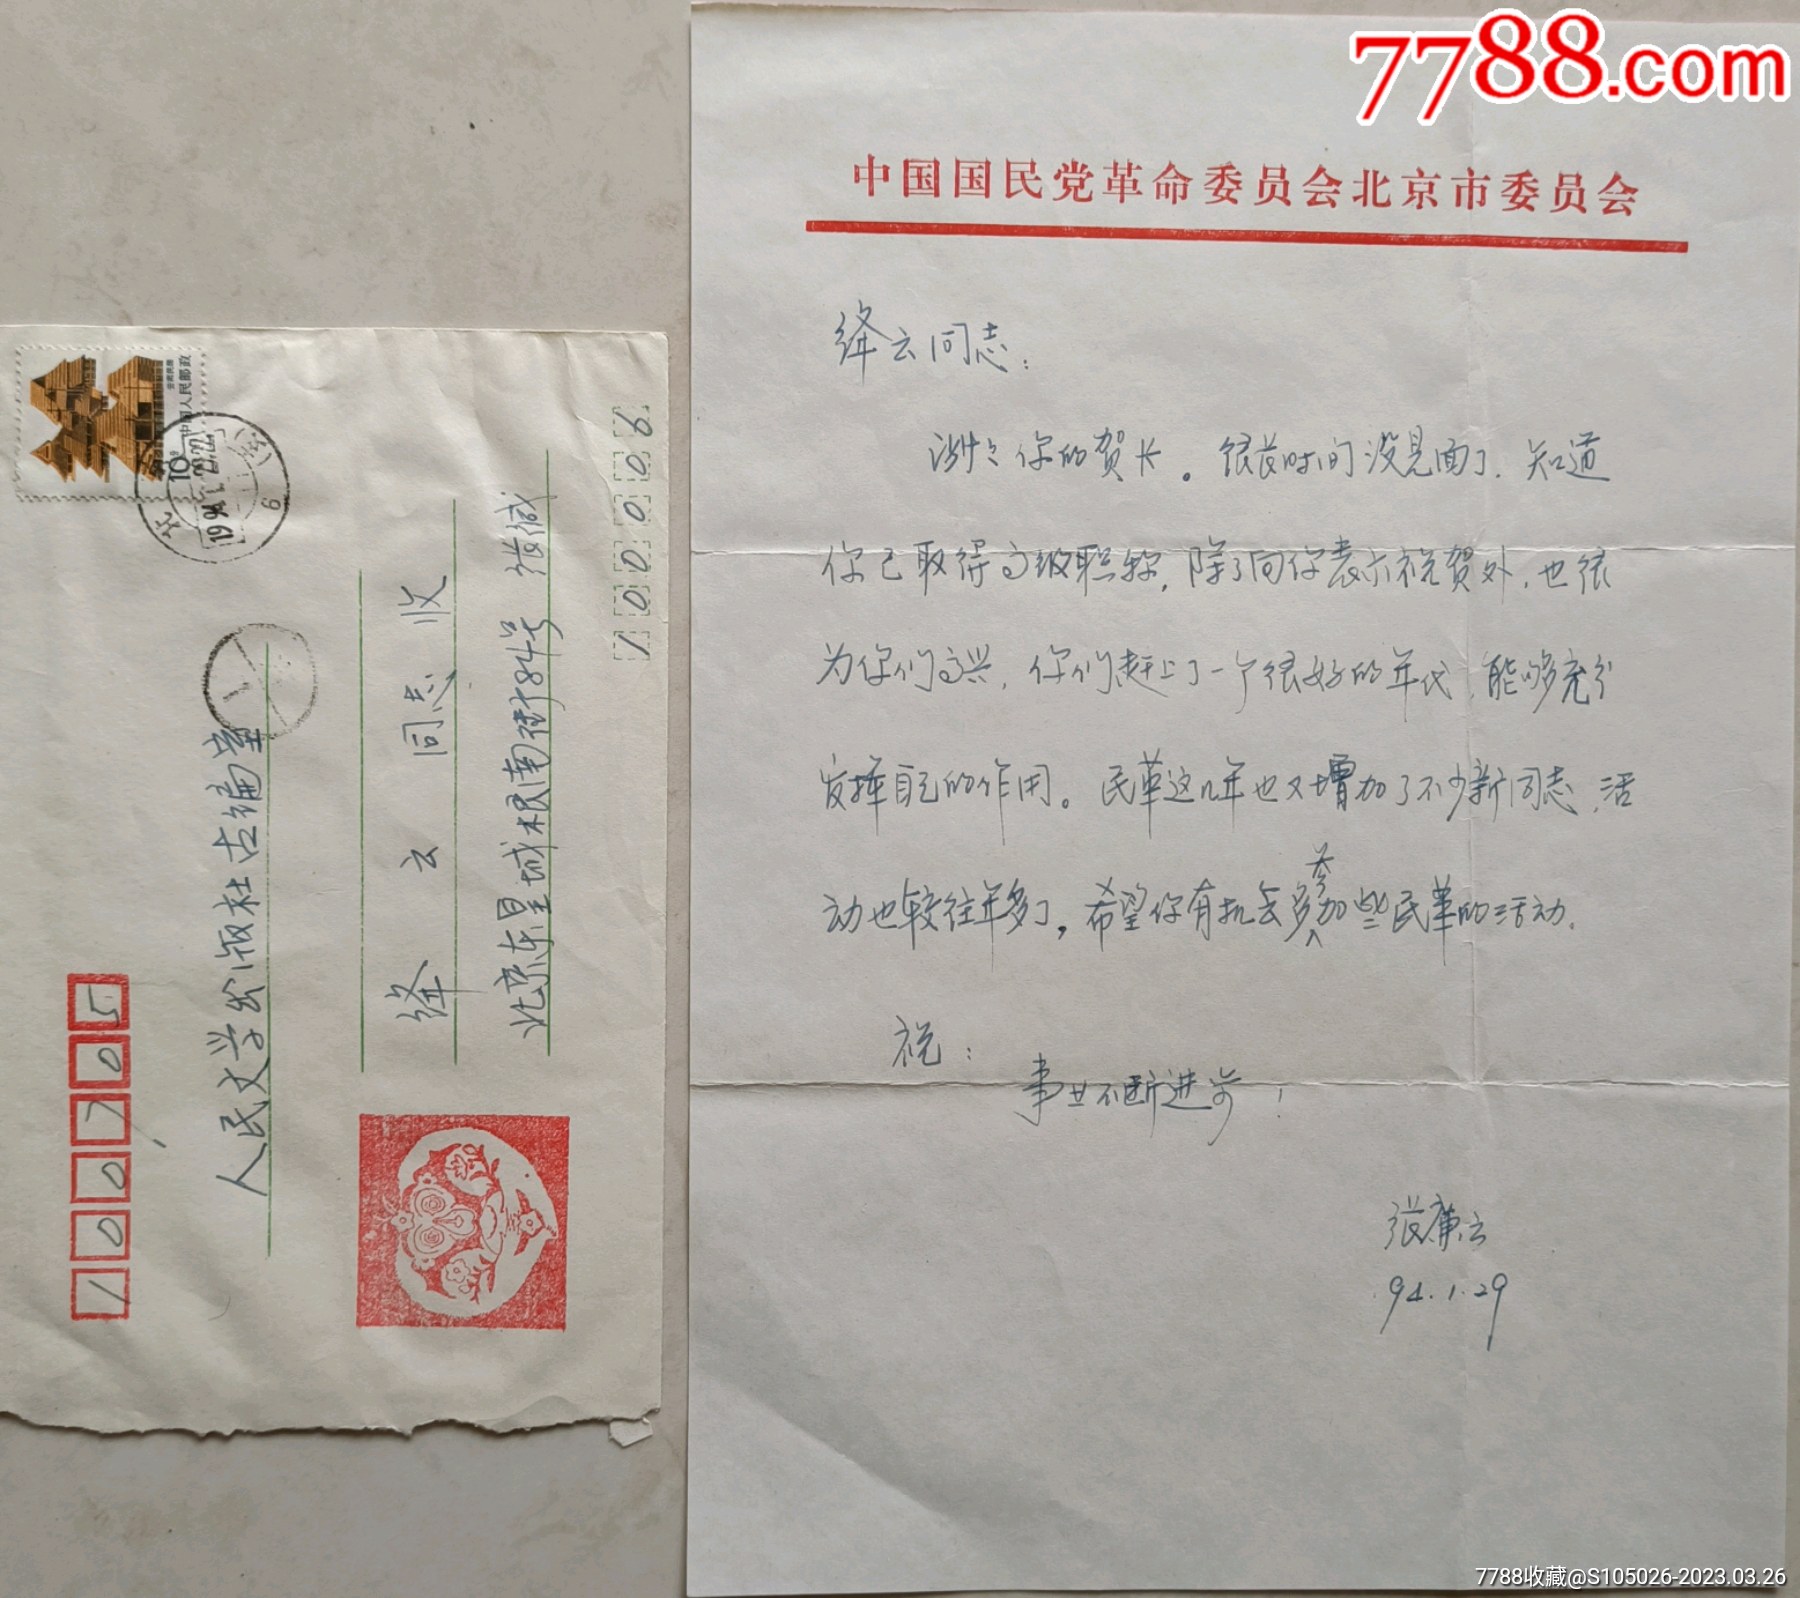 7788.com
中国国民党革命委员会北京市委员会
绛云同志：
谢谢你的贺卡。很长时间没见面了，知道
你已取得高级职称，除了向你表示祝贺外，也很
为你们高兴，你们赶上了一个很好的年代，能够充分
发挥自己的作用。民革这几年也又增加了不少新同志，活
动也较往年多了，希望你有机会多参加些民革的活动。
祝：
事业不断进步！
张廉云
94.1.29
100705
人民文学出版社古编室
绛云同志 收
北京东皇城根南街84号 张缄
100006
中国人民邮政
10
7788收藏@S105026-2023.03.26